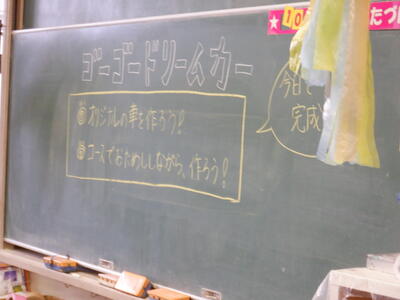 ゴーゴードリームカー
オリジナルの車を作ろう!
コースでおためししながら、作ろう!
今日で
完成
★10
たづけ